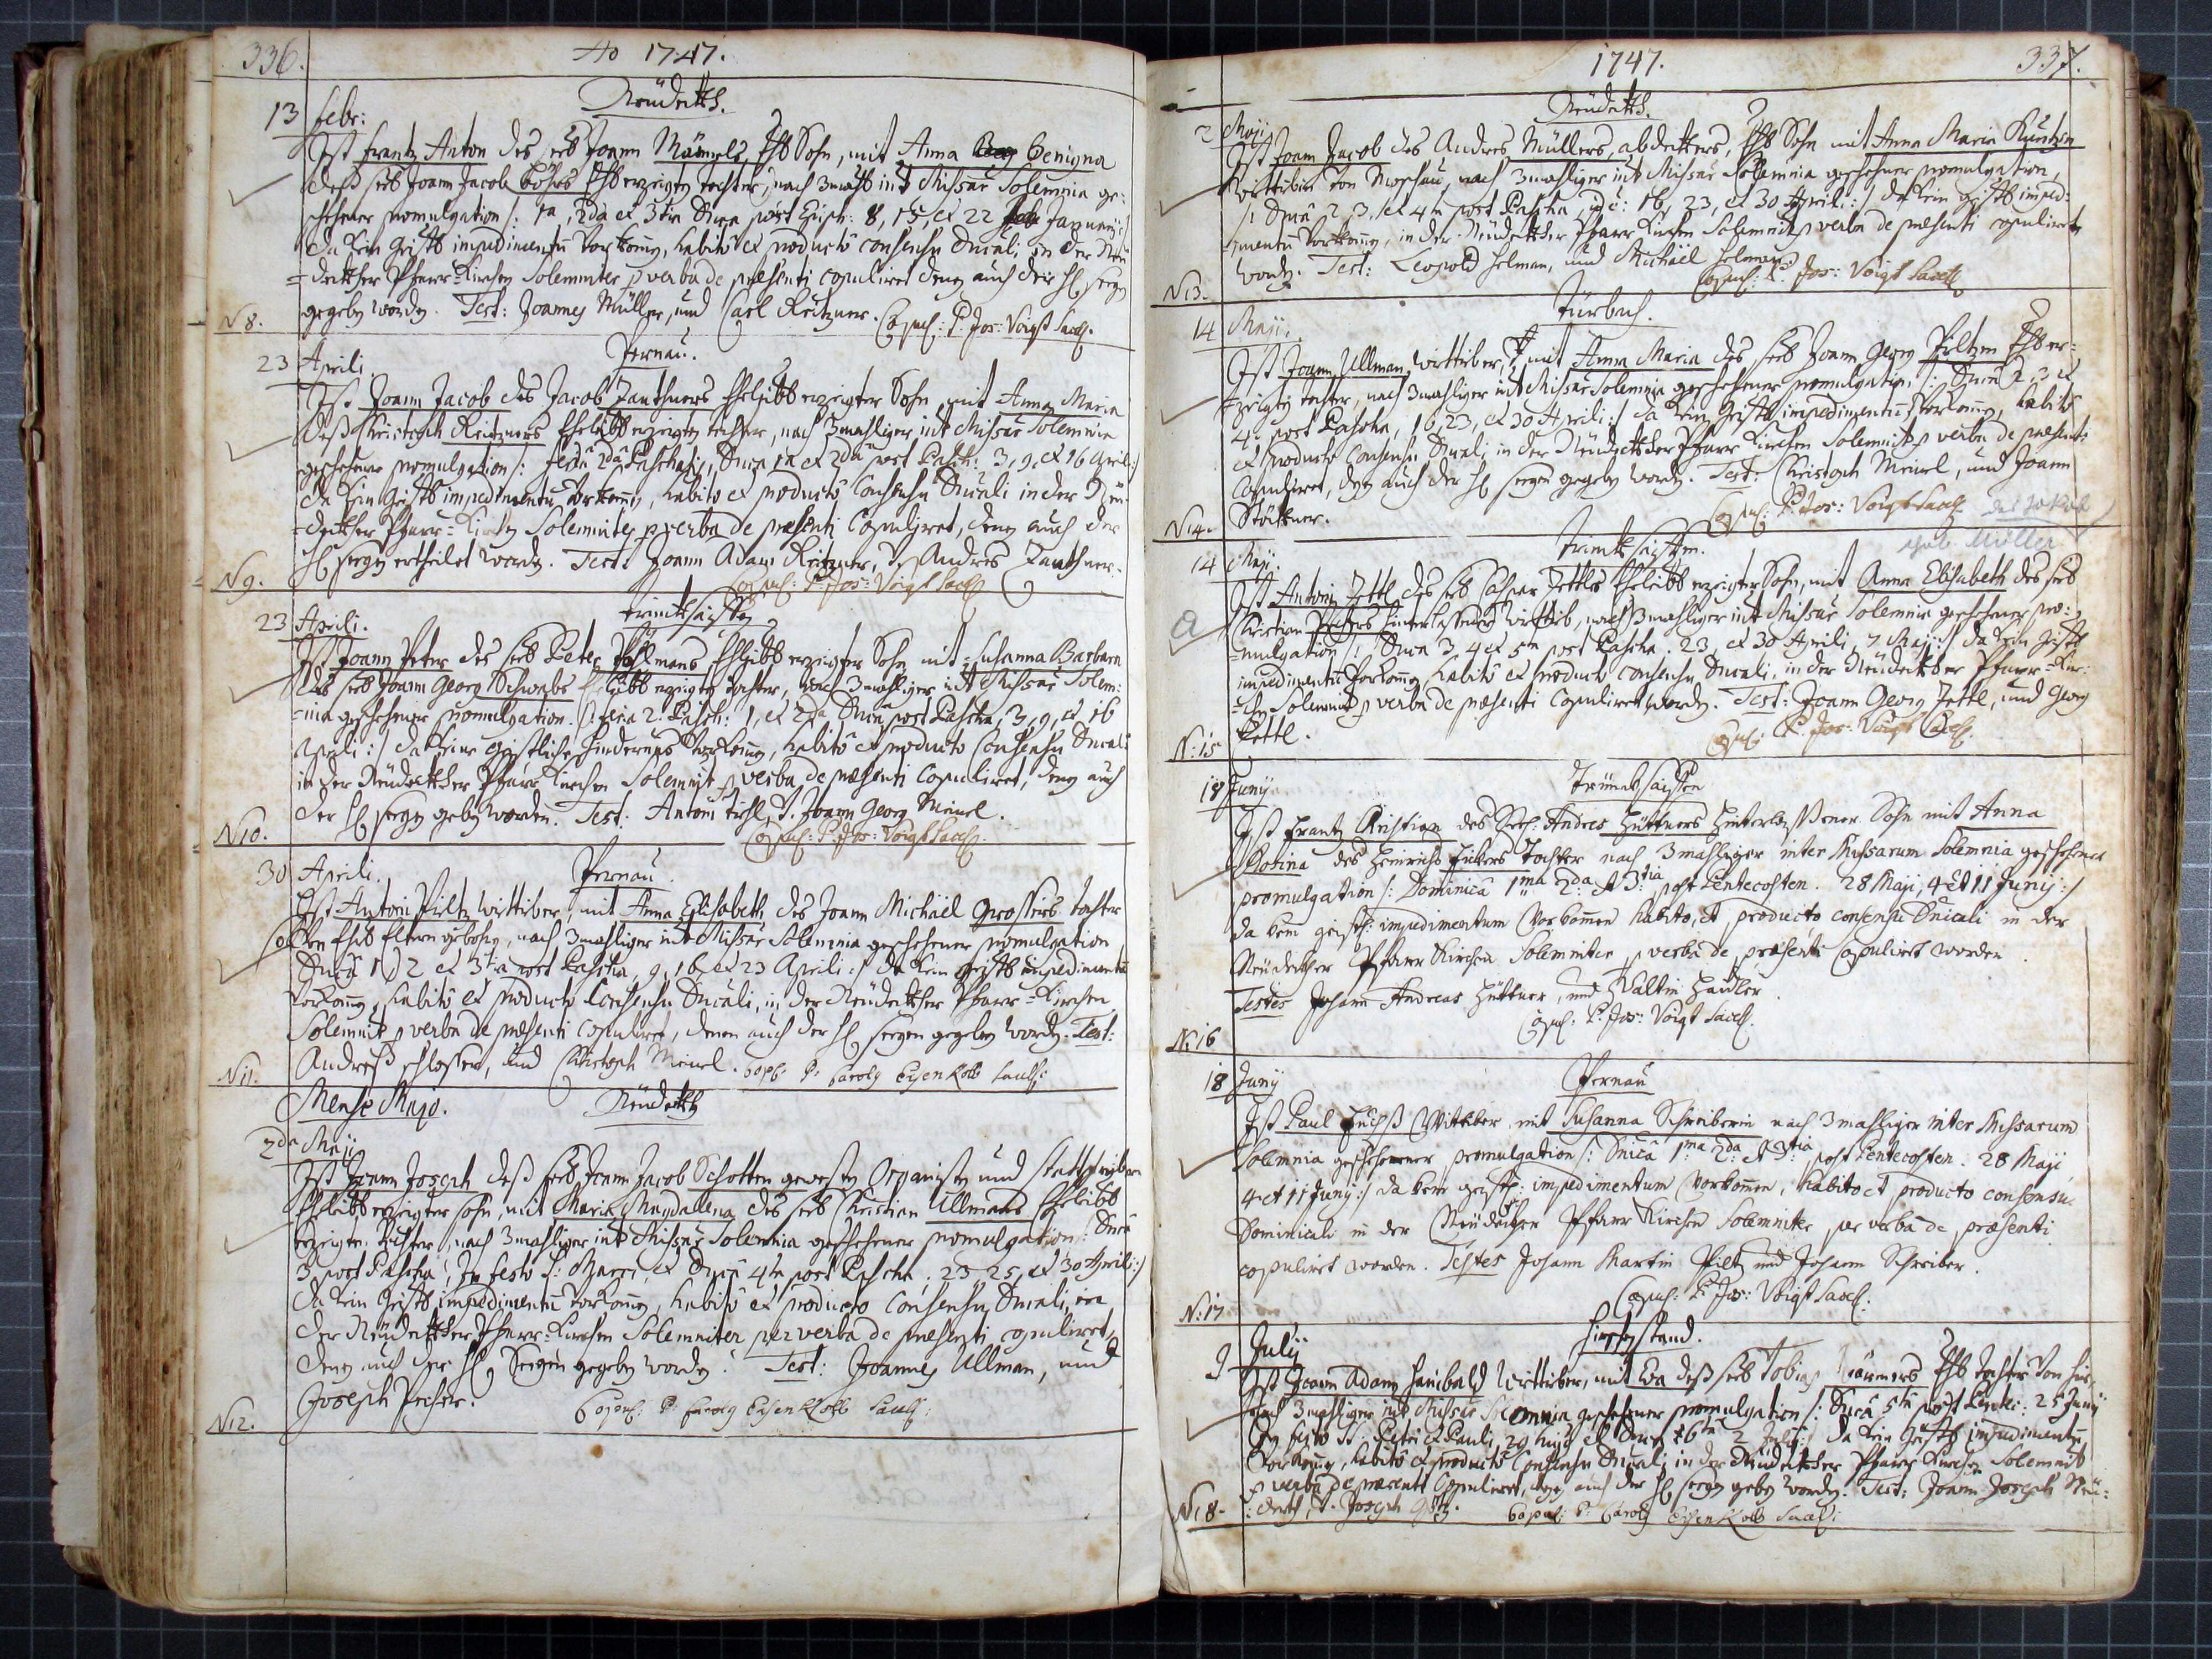 336.
Ao 1747.
Neudeckh.
13 febr:
Ist Frantz Anton des seel: Joann Mämels Ehl: Sohn, mit Anna Benigna
deß seel: Joann Jacob Ehl: erzeigten tochter, nach 3mahl: int: Missar: Solemnia ge:
schehener promulgation /: 1a, 2da et 3tia Dnca post Epiph: 8, 15, et 22 January :/
da kein Geistl: impedimentū Vorkomen, habito et producto consensu Dnicali in der Neu
=deckher Pfarr=Kirchen Solemniter p verba de præsenti copuliret denen auch der Hl: seegen
gegeben worden. Test: Joannes Müller, und Carl Reitzner. Copul: P: Jos: Voigt Sacell.
N 8.
23 Aprili.
Pernau.
Ist Joann Jacob des Jacob Zanthners Ehleibl: erzeigter Sohn, mit Anna Maria
deß Christoph Reitzners Ehleibl: erzeigten tochter, nach 3mahliger int: Missar: Solemnia
geschehener promulgation /: feriâ 2dâ Paschatis, Dnca 1a et 2da post Pasch: 3, 9, et 16 April :/
da kein Geistl: impedimentū Vorkomen, habito et producto Consensu Dnicali in der Neu
=deckher Pfarr=Kirchen Solemniter p verba de præsenti Copuliret, denen auch der
Hl: seegen ertheilet worden. Test: Joann Adam Reitzner, et Andres Zanthner.
N 9.
Copul: P: Jos: Voigt Sacell
23 Aprili.
trinckhsaiffen
Ist Joann Peter des seel: Peter Pöhlmans Ehleibl: erzeigter Sohn mit Susanna Barbara
des seel: Joann Georg Schwabs Ehleibl: erzeigten tochter, nach 3mahliger int: Missar: Solem:
=nia geschehener promulgation. /: feria 2. Pasch: 1, et 2da Dnca post Pascha, 3, 9, et 16
Aprili :/ da keine geistliche Hindernus Vorkomen, habito et producto Consensu Dnicali
in der Neudeckher Pfarr Kirchen Solemnit: p verba de præsenti copuliret, denen auch
der Hl: seegen geben worden. Test: Antoni tichl, et Joann Georg Meinel.
N 10.
Copul: P: Jos: Voigt Sacell.
30 Aprili.
Pernau.
Ist Antoni Piltz Wittiber, mit Anna Elisabeth des Joann Michäel tochter
Von Ehel: Eltern gebohren, nach 3mahliger int: Missar: Solemnia geschehener promulgation
Dnca 1, 2 et 3tia post Pascha, 9, 16, et 23 Aprili :/ da kein geistl: impedimentū
Vorkomen, habito et producto Consensu Dnicali, in der Neudeckher Pfarr=Kirchen
Solemnit: p verba de præsenti copuliret, denen auch der Hl: seegen gegeben worden. Test:
Andreß schlosser, und Christoph Meinel. Copl: P: Caroly Eisenkolb Sacell:
N 11.
Mense Majo.
Neudeckh
2da Maji
Ist Joann Joseph deß seel: Joann Jacob Schotten gewesten Organisten und stattschreibers
Ehleibl: erzeigter sohn, mit Maria Magdalena des seel: Christian Ullmans Ehleibl:
erzeigten tochter, nach 3mahliger int: Missar: Solemnia geschehener promulgation /: Dnca
3 post Pascha, In festo S: Marci, et Dnca 4ta post Pascha, 23, 25, et 30 Aprili :/
da kein geistl: impedimentū Vorkomen, habito et producto Consensu Dnicali, in
der Neudeckher Pfarr=Kirchen Solemniter per verba de præsenti copuliret,
denen auch der Hl: Seegen gegeben worden. Test: Joannes Ullman, und
Joseph Pecher.
Copul: P: Caroly Eisenkolb Sacell:
N 12.
1747.
337.
Neudeckh.
2 Maji
Ist Joann Jacob des Andres Müllers, abdeckhers, Ehl: Sohn mit Anna Maria
Wittibin von, nach 3mahliger int: Missar: Solemnia geschehener promulgation,
/: Dnca 2, 3, et 4ta post Pascha, 16, 23, et 30 Aprili :/ da kein Geistl: impedi:
mentū Vorkomen, in der Neudeckher Pfarr Kirchen Solemnit: p verba de præsenti copuliret
worden. Test: Leopold Helman, und Michäel Helman.
Copul: P: Jos: Voigt Sacell
N 13.
14 Maji.
Türbach.
Ist Joann Ullman, wittiber, mit Anna Maria des seel: Joann Georg Piltzen Ehl: er=
=zeigten tochter, nach 3mahliger int: Missar: Solemnia geschehener promulgation, /: Dnca 2, 3 et
4. post Pascha, 16, 23, et 30 Aprili :/ da kein Geistl: impedimentū Vorkomen, habito
et producto Consensu Dnicali, in der Neudeckher Pfarr Kirchen Solemnit: p verba de præsenti
Copuliret, denen auch der Hl: seegen gegeben worden. Test: Christoph Meinel, und Joann
Stöckner.
Copul: P: Jos: Voigt Sacell
N 14.
des Jakob
geb. Müller
14 Maji.
trinckhsaiffen.
Ist Antoni Zettl des seel: Caspar Zettls Ehleibl: erzeigter Sohn, mit Anna Elisabeth des seel:
Christian hinterlassener Wittib, nach 3mahliger int: Missar: Solemnia geschehener pro:
=mulgation /: Dnca 3, 4 et 5ta post Pascha. 23, et 30 Aprili, 7 Maji :/ da kein geistl:
impedimentū Vorkomen, habito et producto consensu Dnicali, in der Neudeckher Pfarr=Kir:
=chen Solemnit: p verba de præsenti Copuliret worden. Test: Joann Georg Zettl, und Georg
Zettl.
Copul: P: Jos: Voigt Sacell.
N: 15
18 Junij
Trünckhsaiffen
Ist Frantz Christian des Seel: Andres Hüttners Hinterlassener Sohn mit Anna
Rosina des Heinrichs Fickers Tochter nach 3mahliger inter Missarum Solemnia geschehener
promulgation /: Dominicâ 1ma 2da et 3tia post Pentecosten. 28 Maji, 4 et 11 Junij :/
da kein geistl: impedimentum Vorkomen habito, et producto, consensu Dnicali in der
Neudeckher Pfarr Kirchen Solemniter p verba de præsenti Copuliret worden.
Testes Johann Andreas Hüttner, und Valtin Haidler.
Copul: P: Jos: Voigt Sacell.
N: 16
18 Junij
Pernau
Ist Paul Fuchß Wittiber mit Susanna Schreiberin nach 3mahliger inter Missarum
Solemnia geschehener promulgation /: Dnicâ 1ma 2da et 3tia post Pentecosten. 28 Maji,
4 et 11 Junij :/ da kein geistl: impedimentum Vorkomen, habito et producto consensu
Dominicali in der Neudeckher Pfarr Kirchen Solemniter per verba de præsenti
copuliret worden. Testes Johann Martin Piltz und Johann Schreiber.
Copul: P: Jos: Voigt Sacell:
N: 17
9 Julij
Hirschenstand.
Ist Joann Adam Hanibald Wittiber, mit Eva deß seel: Tobias Ehl: tochter Von hier,
nach 3mahliger int: Missar: Solemnia geschehener promulgation /: Dnca 5ta post Pente: 25 Junij
In festo SS: Petri et Pauli, 29 huj: et Dnca 6ta 2 Julij :/ da kein geistl: impedimentū
Vorkomen, habito et producto Consensu Dnicali, in der Neudeckher Pfarr Kirchen Solemnit:
p verba de præsenti Copuliret, denen auch der Hl: seegen geben worden. Test: Joann Joseph Neu:
:derth, et Joseph Götz. Copul: P: Caroly Eisenkolb Sacell:
N 18.